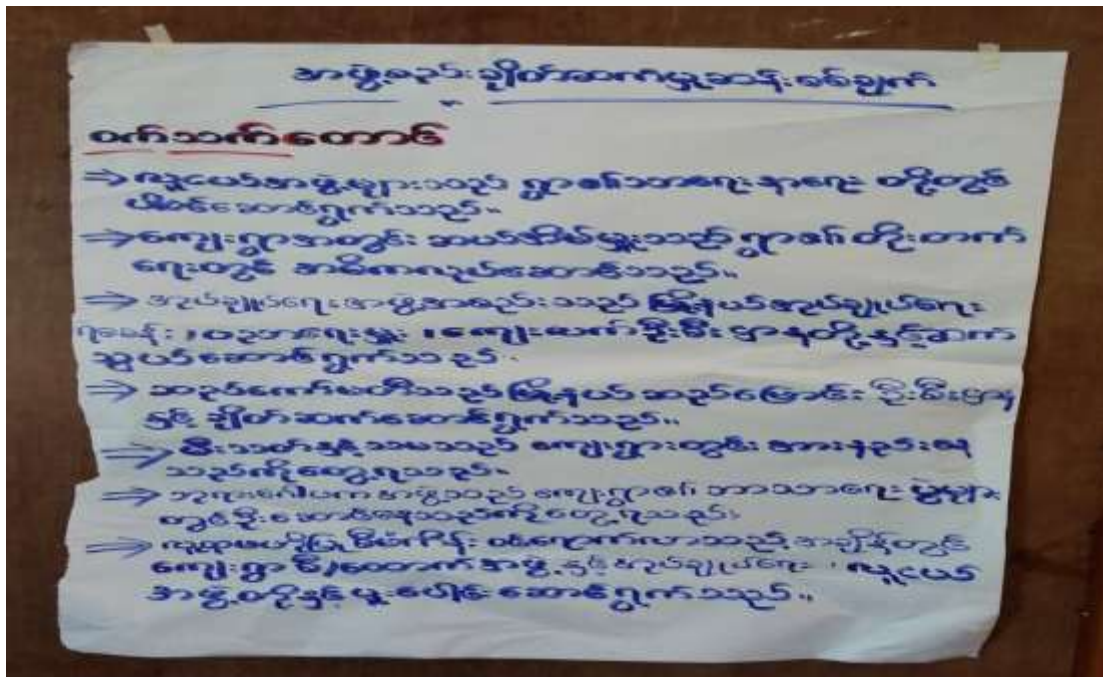 အဖွဲ့စည်းချိတ်ဆက်မှုဆန်းစစ်ချက်
ဝက်သက်တောင်
⇒ လူငယ်အဖွဲ့များသည် ရွာ၏သာရေးနာရေး တို့တွင်
ပါဝင်ဆောင်ရွက်သည်။
⇒ ကျေးရွာအတွင်း ဆယ်အိမ်မှူးသည် ရွာ၏ တိုးတက်
ရေးတွင် အဓိကလုပ်ဆောင်သည်။
⇒ အုပ်ချုပ်ရေးအဖွဲ့အစည်းသည် မြို့နယ်အုပ်ချုပ်ရေး
ရဲစခန်း၊ ပညာရေးမှူး၊ ကျေးလက်ဦးစီးဌာနတို့နှင့်ဆက်
သွယ်ဆောင်ရွက်သည်။
⇒ ဆည်ကော်မတီသည် မြို့နယ်ဆည်မြောင်းဦးစီးဌာန
နှင့် ချိတ်ဆက်ဆောင်ရွက်သည်။
⇒ မီးသတ်နှင့်သမသည် ကျေးရွာတွင်း အားနည်းနေ
သည်ကိုတွေ့ရသည်။
⇒ ဘုရားဂေါပကအဖွဲ့သည် ကျေးရွာ၏ ဘာသာရေးပွဲများ
တွင်ဦးဆောင်နေသည်ကိုတွေ့ရသည်။
⇒ လူထုဗဟိုပြုစီမံကိန်း ဝင်ရောက်လာသည့်အချိန်တွင်
ကျေးရွာစီ/ထောက်အဖွဲ့နှင့်အုပ်ချုပ်ရေး၊ လူငယ်
အဖွဲ့တို့နှင့်ပူးပေါင်းဆောင်ရွက်သည်။